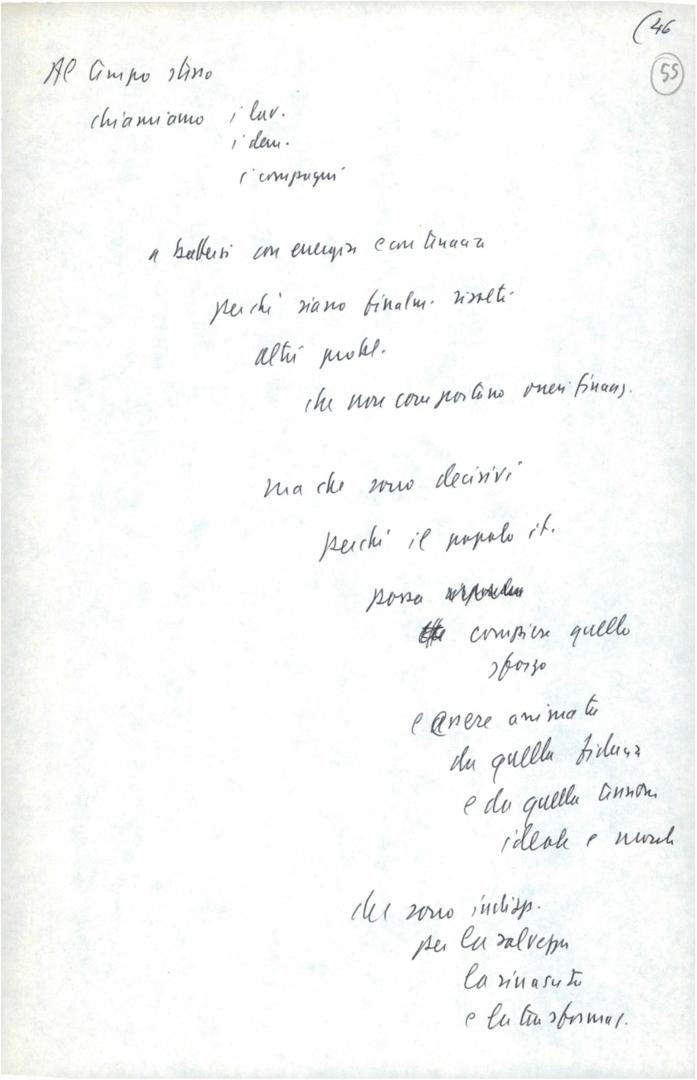 (46
55
Al tempo stesso
chiamiamo i lav.
i dem.
i compagni
a battersi con energia e con tenacia
perché siano finalm. risolti
altri probl.
che non comportano oneri finanz.
ma che sono decisivi
perché il popolo it.
possa
compiere quello
sforzo
e essere animato
da quella fiducia
e da quella tensione
ideale e morale
che sono indisp.
per la salvezza
la rinascita
e la trasformaz.